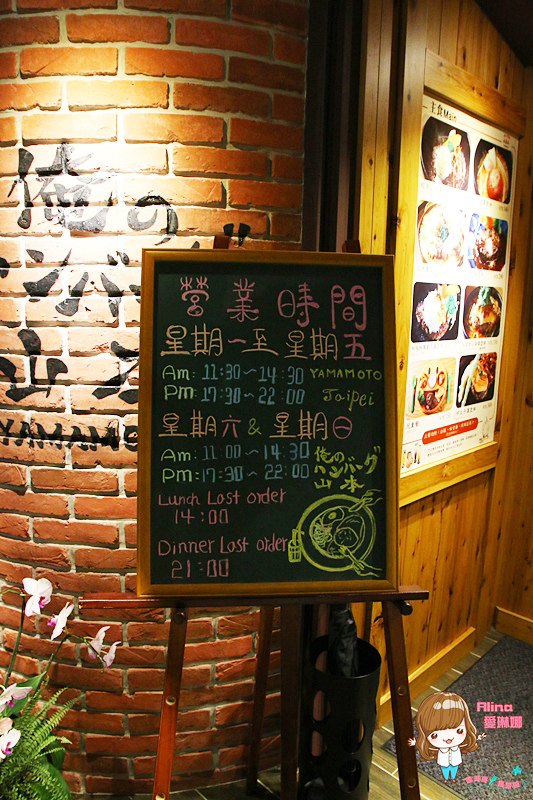 俺の
山本
YAMAMO
主食Main
營業時間
星期一至星期五
Am: 11:30~14:30 YAMAMOTO
Pm: 17:30~22:00 Taipei
星期六&星期日
Am: 11:00~14:30 俺の
Pm: 17:30~22:00 ハンバーグ
山本
Lunch Last order
14:00
Dinner Last order
21:00
Alina
愛琳娜